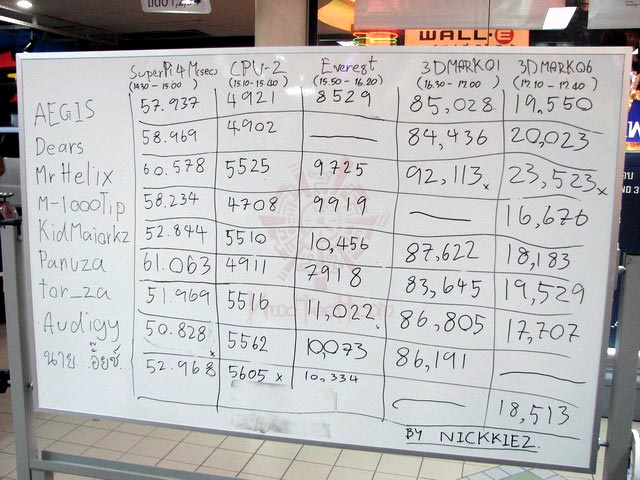 WALL·E
SuperPi 4 M(sec) CPU-2 Everest 3DMARK01 3DMARK06
(14.30 - 15.00) (15.10 - 15.40) (15.50 - 16.20) (16.30 - 17.00) (17.10 - 17.40)
AEGIS 57.937 4921 8529 85,028 19,550
Dears 58.969 4902 — 84,436 20,023
MrHelix 60.578 5525 9725 92,113 x 23,523 x
M-1000Tip 58.234 4708 9919 — 16,676
KidMaiorkz 52.844 5510 10,456 87,622 18,183
Panuza 61.063 4911 7918 83,645 19,529
tor_za 51.969 5516 11,022 86,805 17,707
Audigy 50.828 x 5562 10,073 86,191 —
นาย.. 52.968 5605 x 10,334 — 18,513
BY NICKKIEZ.